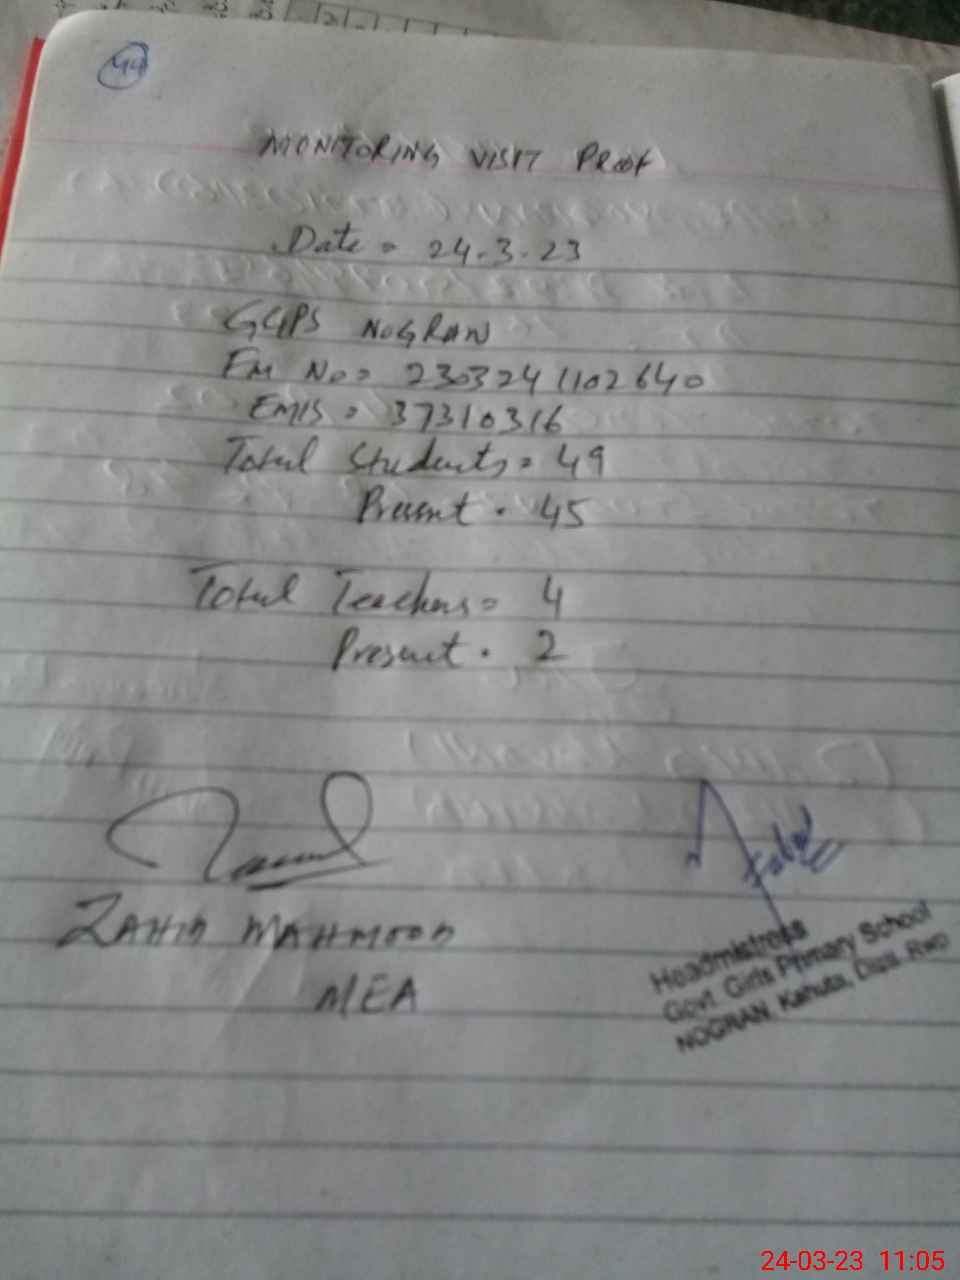 44
MONITORING VISIT PROOF
Date = 24.3.23
GGPS NOGRAN
FM No = 2303241102640
EMIS = 37310316
Total Students = 49
Present . 45
Total Teachers = 4
Present . 2
ZAHID MAHMOOD
MEA
Headmistress
Govt. Girls Primary School
NOGRAN, Kahuta, Distt. Rwp
24-03-23 11:05